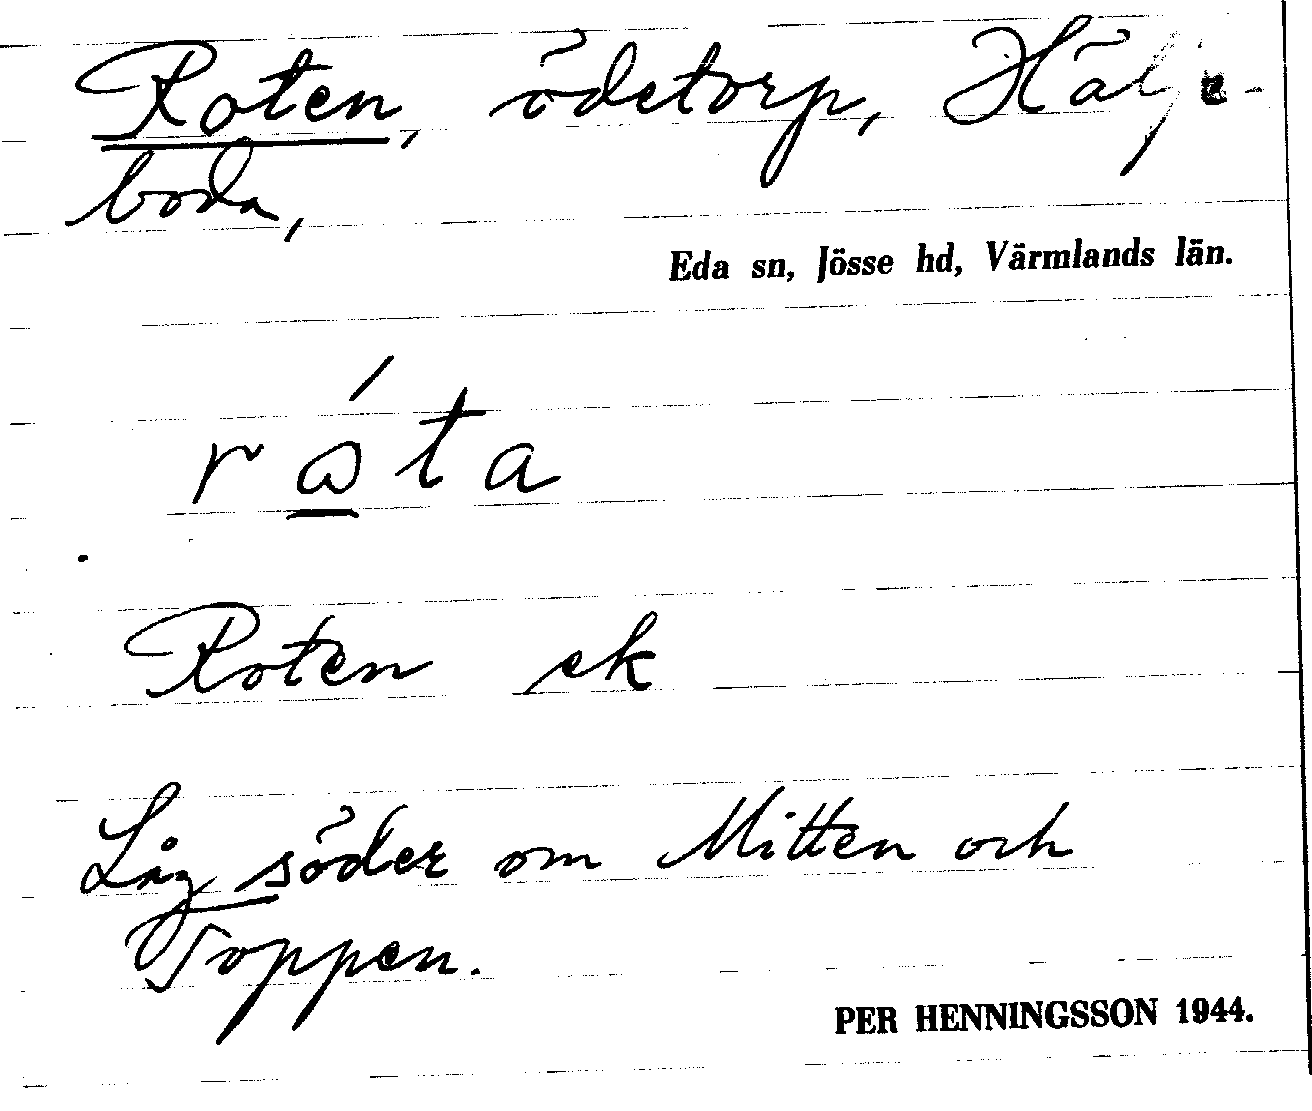 Roten, ödetorp, Hälje-
boda,
Eda sn, Jösse hd, Värmlands län.
Roten ek
Låg söder om Mitten och
Toppen.
PER HENNINGSSON 1944.